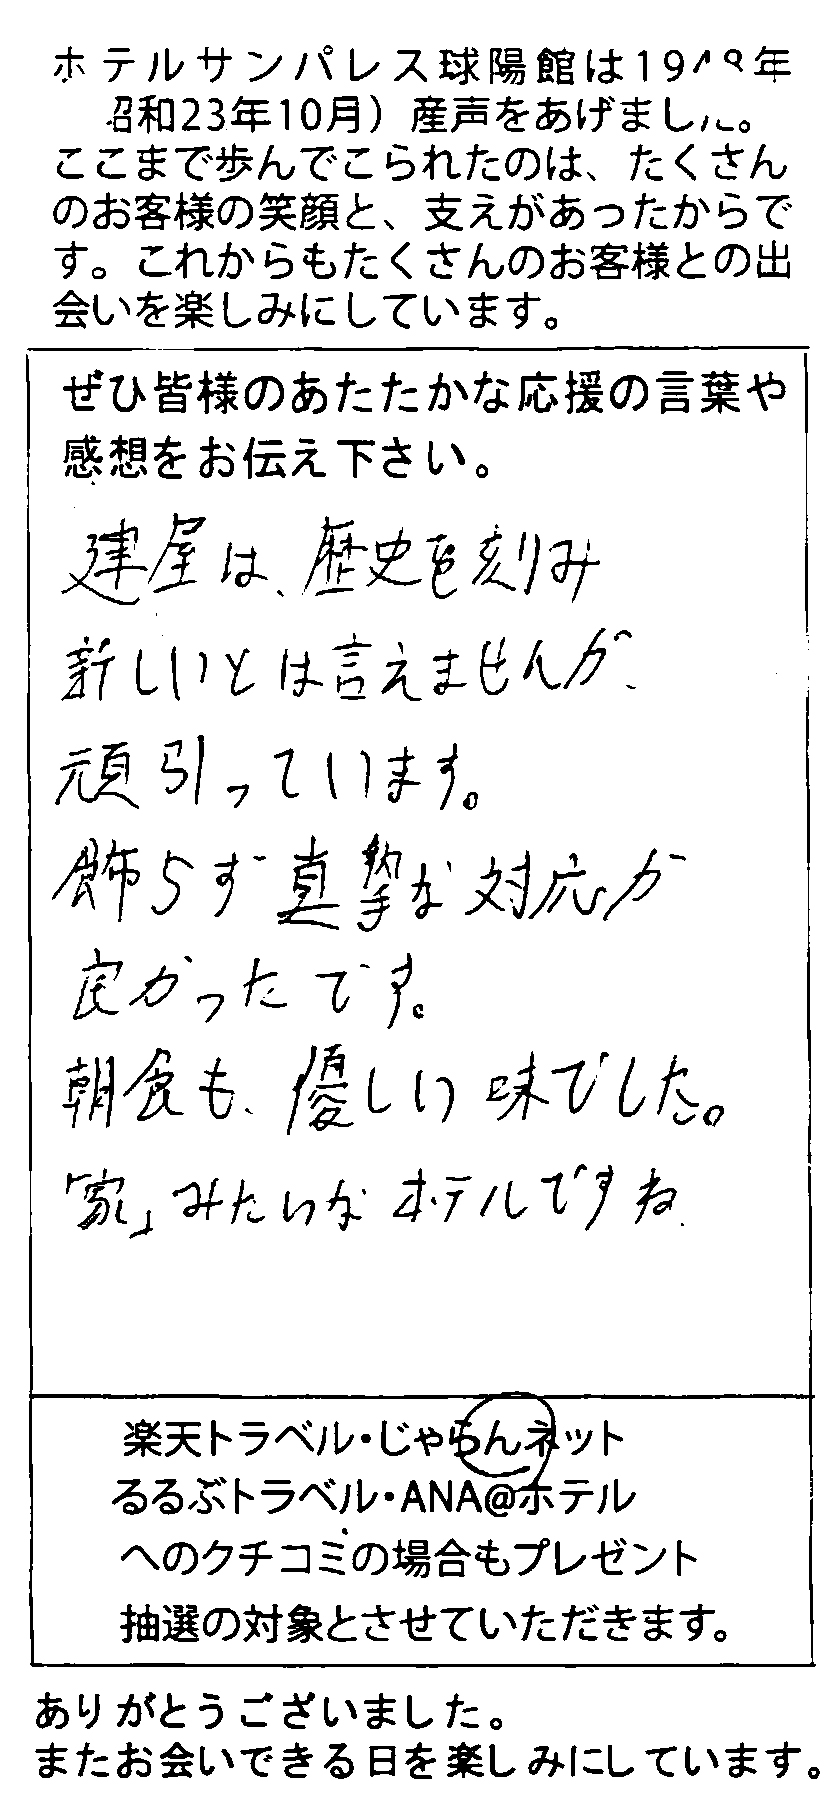 ホテルサンパレス球陽館は1948年
昭和23年10月）産声をあげました。
ここまで歩んでこられたのは、たくさん
のお客様の笑顔と、支えがあったからで
す。これからもたくさんのお客様との出
会いを楽しみにしています。
ぜひ皆様のあたたかな応援の言葉や
感想をお伝え下さい。
建屋は、歴史を刻み
新しいとは言えませんが、
頑引っています。
飾らず真摯な対応が
良かったです。
朝食も、優しい味でした。
「家」みたいなホテルですね.
楽天トラベル・じゃらんネット
るるぶトラベル・ANA@ホテル
へのクチコミの場合もプレゼント
抽選の対象とさせていただきます。
ありがとうございました。
またお会いできる日を楽しみにしています。